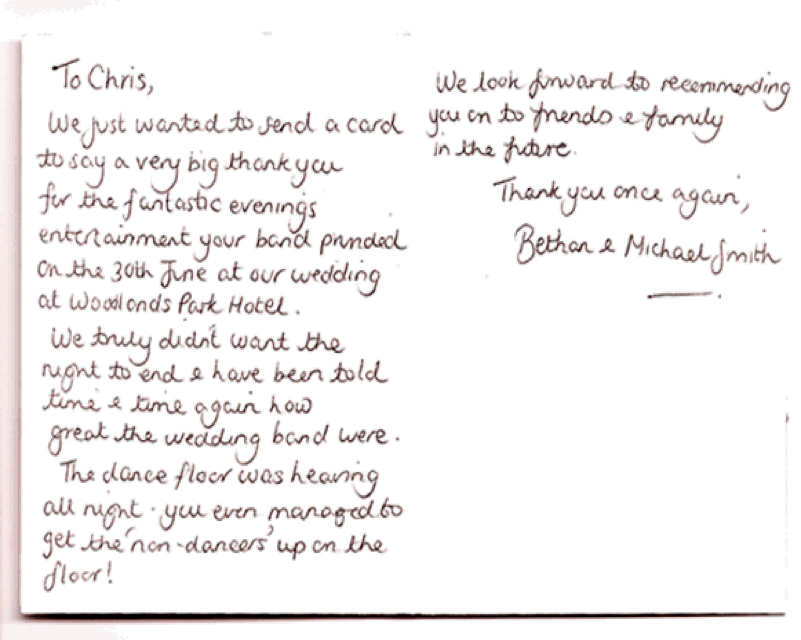 To Chris,
We just wanted to send a card
to say a very big thank you
for the fantastic evenings
entertainment your band provided
on the 30th June at our wedding
at Woodlands Park Hotel.
We truly didn't want the
night to end & have been told
time & time again how
great the wedding band were.
The dance floor was heaving
all night. you even managed to
get the 'non-dancers' up on the
floor!
We look forward to recommending
you on to friends & family
in the future.
Thank you once again,
Bethan & Michael Smith